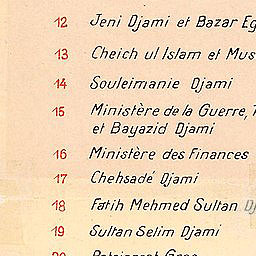 12 Jeni Djami et Bazar Eg
13 Cheich ul Islam et Mus
14 Souleimanie Djami
15 Ministère de la Guerre,
et Bayazid Djami
16 Ministère des Finances
17 Chehsadé Djami
18 Fatih Mehmed Sultan Dj
19 Sultan Selim Djami